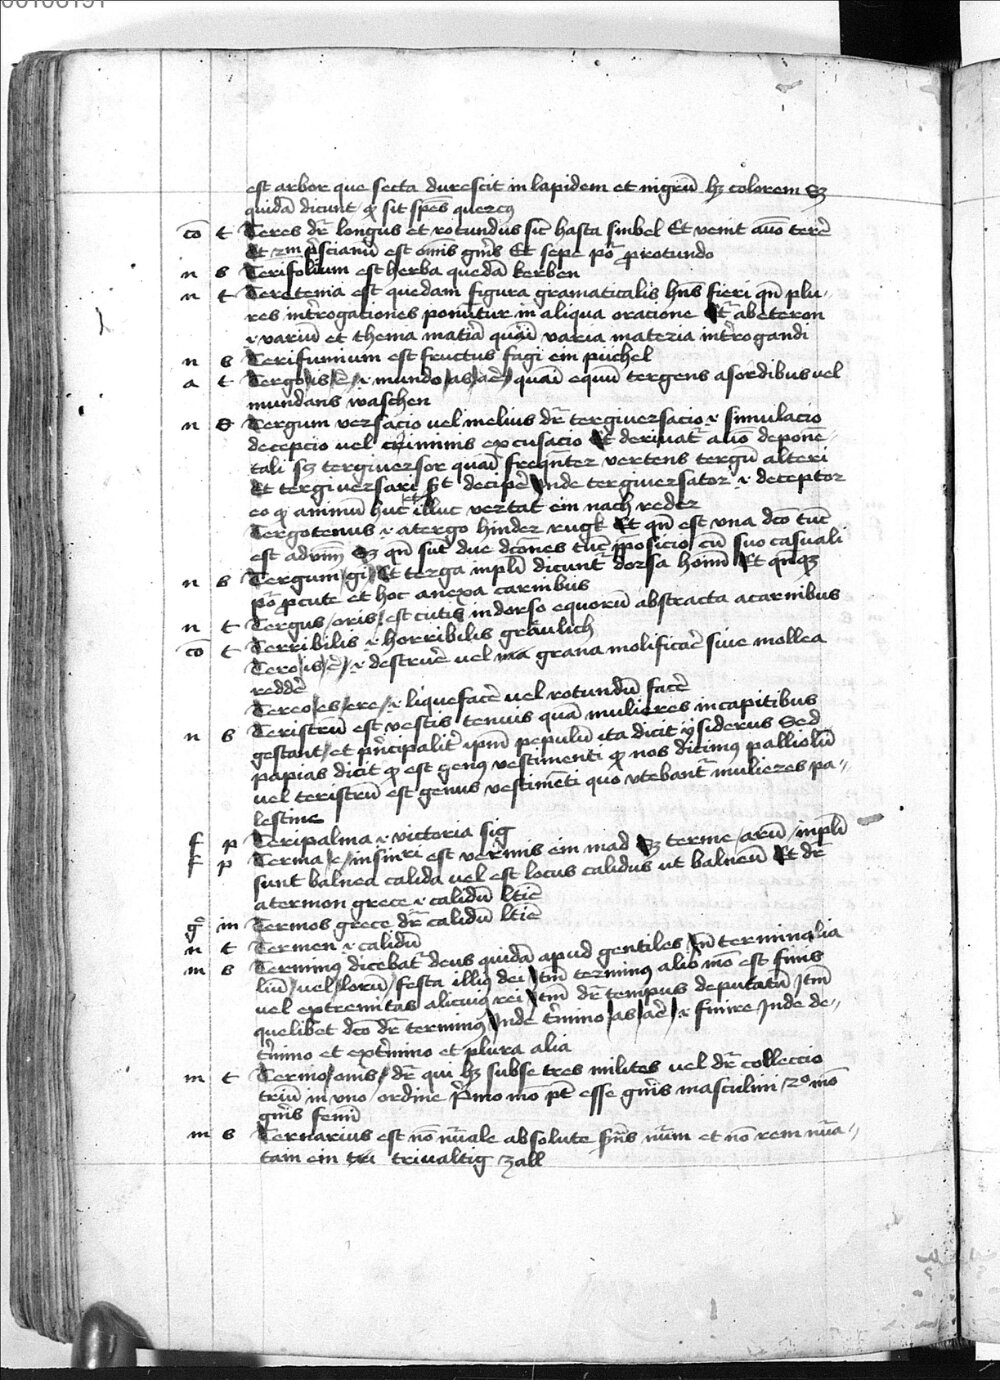 est arbor que secta durescit in lapidem et nigrū hʒ colorem Sʒ
quidā dicunt qͥ sit spēs quercꝰ
cō t Teres dr̄ longus et rotundus sic̄ hasta sinbel Et venit auō terē
Et 2m p̄scianū est om̄is gn̄is Et sepe po̅ ꝓ rotundo
n s Terifolium est herba quedā kerben
n t Teretema est quedam figura gramaticalis hn̄s fieri qn̄ plu-
res int̄rogationes ponūtur in aliqua oracione Et̄ abeteron
.i. variū et thema matīa quāi varia materia int̄rogandi
n s Terifumium est fructus fagi ein püchel
a t Tergo/is/ē/ .i. mundo/as/āē/ quāi equū tergens asordibus vel
mundans waschen
n s Tergum versacio vel melius dr̄ tergiversacio .i. simulacio
decepcio vel criminis excusacio Et derivat̄ auō depone-
tali sʒ tergiversor quāi freqn̄ter vertens tergū alteri
Et tergiversari st̄ decipē Inde tergiuersator .i. deceptor
eo qͥ animū huc et illuc vertat ein nach reder
Tergotenus .i. atergo hinder rugk Et qn̄ est vna dc̄o tūc
est advm̄ Sʒ qn̄ sūt due dcōnes tūc p̄posicio cū suo casuali
n s Tergum/gi/ Et terga inplī dicunt̄ dorsa hoīm Et qn̄qʒ
po̅ ꝓ cute et hoc anexa carnibus
n t Tergus/oris/ est cutis in dorso equorū abstracta acarnibus
cō t Terribilis .i. horribilis gräulich
Tero/is/ē/ .i. destruē vel grana molificāē siue mollea
reddē
Tereo/es/ere/ .i. liquefacē vel rotundū facē
n s Teristrū est vestis tenuis quā mulieres incapitibus
gestant/ et pn̄cipalit̄ ipm̄ pepulū ita dicit ysiderus Sed
papias dicit qͥ est genꝰ vestimenti qͥ nos dicimꝰ palliolū
vel teristrū est genus vestimēti quo vtebant̄ mulieres pa-
lestine
f p Teripalma .i. victoria sig
f p Terma/e/ insin̄ri est vermis ein mad Sʒ terme/arū/ inplī
sunt balnea calida vel est locus calidus ut balneū Et dr̄
atermon grece .i. calidū ltīē
gͤ m Termos grece dr̄ calidū ltīē
n t Termen .i. calidū
m s Terminꝰ dicebat̄ deus quidā apud gentiles In̄ terminalia
liū/ vel/ lorū/ festa illiꝰ dei Itm̄ terminꝰ alio mō est finis
vel extremitas alicuiꝰ rei Itm̄ dr̄ tempus deputatū Itm̄
quelibet dc̄o dr̄ terminꝰ Inde t̄mino/as/āē/ .i. finire Inde de-
t̄mino et ext̄mino et plura alia
m t Termo/onis/ dr̄ qui hʒ subse tres milites vel dr̄ colleccio
triū in vno/ ordine P̄mo mō pt̄ esse gn̄is masculini/ 2o mō
gn̄is femī
m s Ternarius est nō nūale absolute sin̄s nūm et nō rem nūa-
tam ein tri trivaltig zall